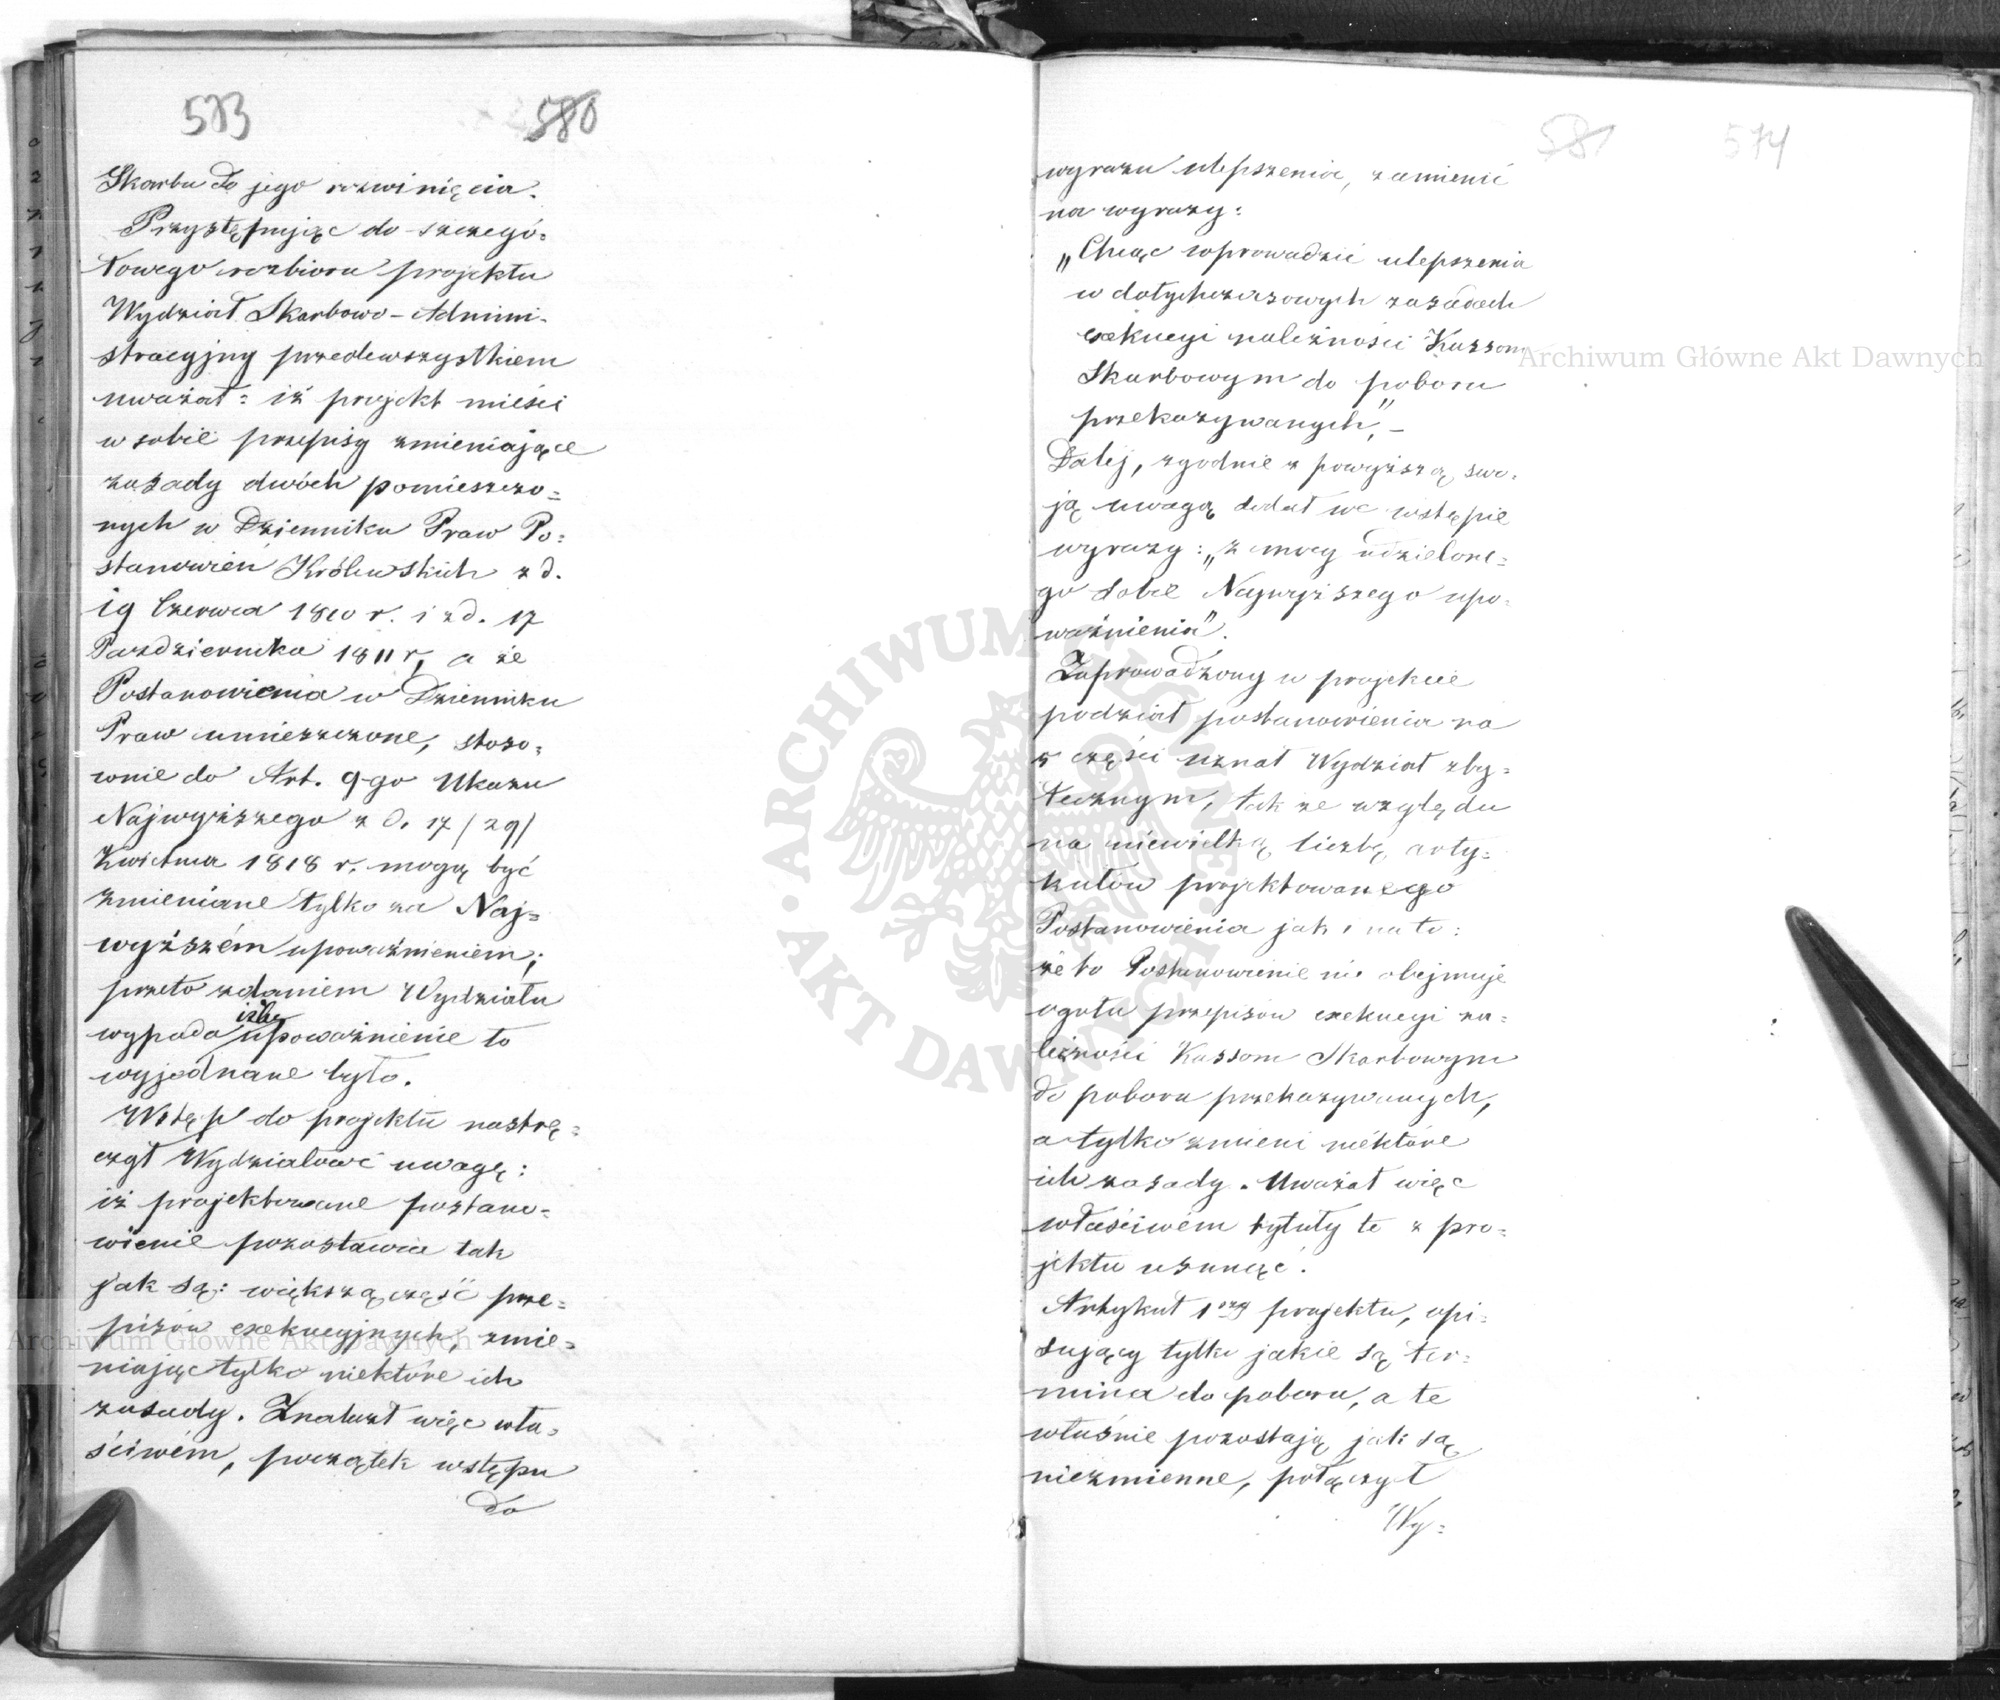 573 580
Skarbu do jego rozwinięcia.
Przystępując do szczegó=
łowego rozbioru projektu
Wydział Skarbowo-Admini-
stracyjny przedewszystkiem
uważał: iż projekt mieści
w sobie przepisy zmieniające
zasady dwóch pomieszczo=
nych w Dzienniku Praw Po=
stanowień Królewskich z d.
19 Czerwca 1810 r. i z d. 17
Października 1811 r, a że
Postanowienia w Dzienniku
Praw umieszczone, stoso=
wnie do Art. 9-go Ukazu
Najwyższego z d. 17/29/
Kwietnia 1818 r. mogą być
zmieniane tylko za Naj=
wyższém upoważnieniem;
przeto zdaniem Wydziału
wypada iżby upoważnienie to
wyjednane było.
Wstęp do projektu nastrę=
czył Wydziałowi uwagę:
iż projektowane postano=
wienie pozostawia tak
jak są: większą część prze=
pisów exekucyjnych, zmie=
niając tylko niektóre ich
zasady. Znalazł więc wła=
ściwém, początek wstępu
do
581 574
wyrazu ulepszenia, zamienić
na wyrazy:
„Chcąc wprowadzić ulepszenia
w dotychczasowych zasadach
exekucyi należności Kassom
Skarbowym do poboru
przekazywanych”, –
Dalej, zgodnie z powyższą swo=
ją uwagą dodał we wstępie
wyrazy: „z mocy udzielone=
go sobie Najwyższego upo=
ważnienia”.
Zaprowadzony w projekcie
podział postanowienia na
5 części uznał Wydział zby=
tecznym, tak ze względu
na niewielką liczbę arty=
kułów projektowanego
Postanowienia jak i na to:
że to Postanowienie nie obejmuje
ogółu przepisów exekucyi na=
leżności Kassom Skarbowym
do poboru przekazywanych,
a tylko zmieni niektóre
ich zasady. Uważał więc
właściwém tytuły te z pro=
jektu usunąć.
Artykuł 1szy projektu, opi=
sujący tylko jakie są ter=
mina do poboru, a te
właśnie pozostają jak są
niezmienne, połączył
Wy=
Archiwum Główne Akt Dawnych
Archiwum Główne Akt Dawnych
ARCHIWUM GŁÓWNE AKT DAWNYCH